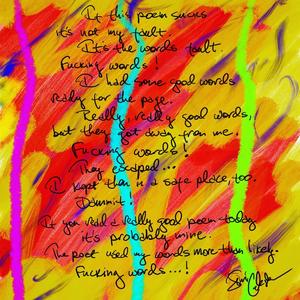 If this poem sucks
it's not my fault.
It's the words fault.
Fucking words!
I had some good words
Ready for the page.
Really, really good words,
but they got away from me.
Fucking words!
They escaped...
I kept them in a safe place, too.
Dammit!
If you read a really good poem today
it's probably mine.
The poet used my words more than likely.
Fucking words...!